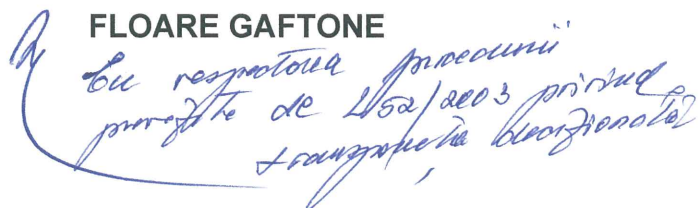 FLOARE GAFTONE
Cu respectarea procedurii
prevăzute de L52/2003 privind
transparența decizională